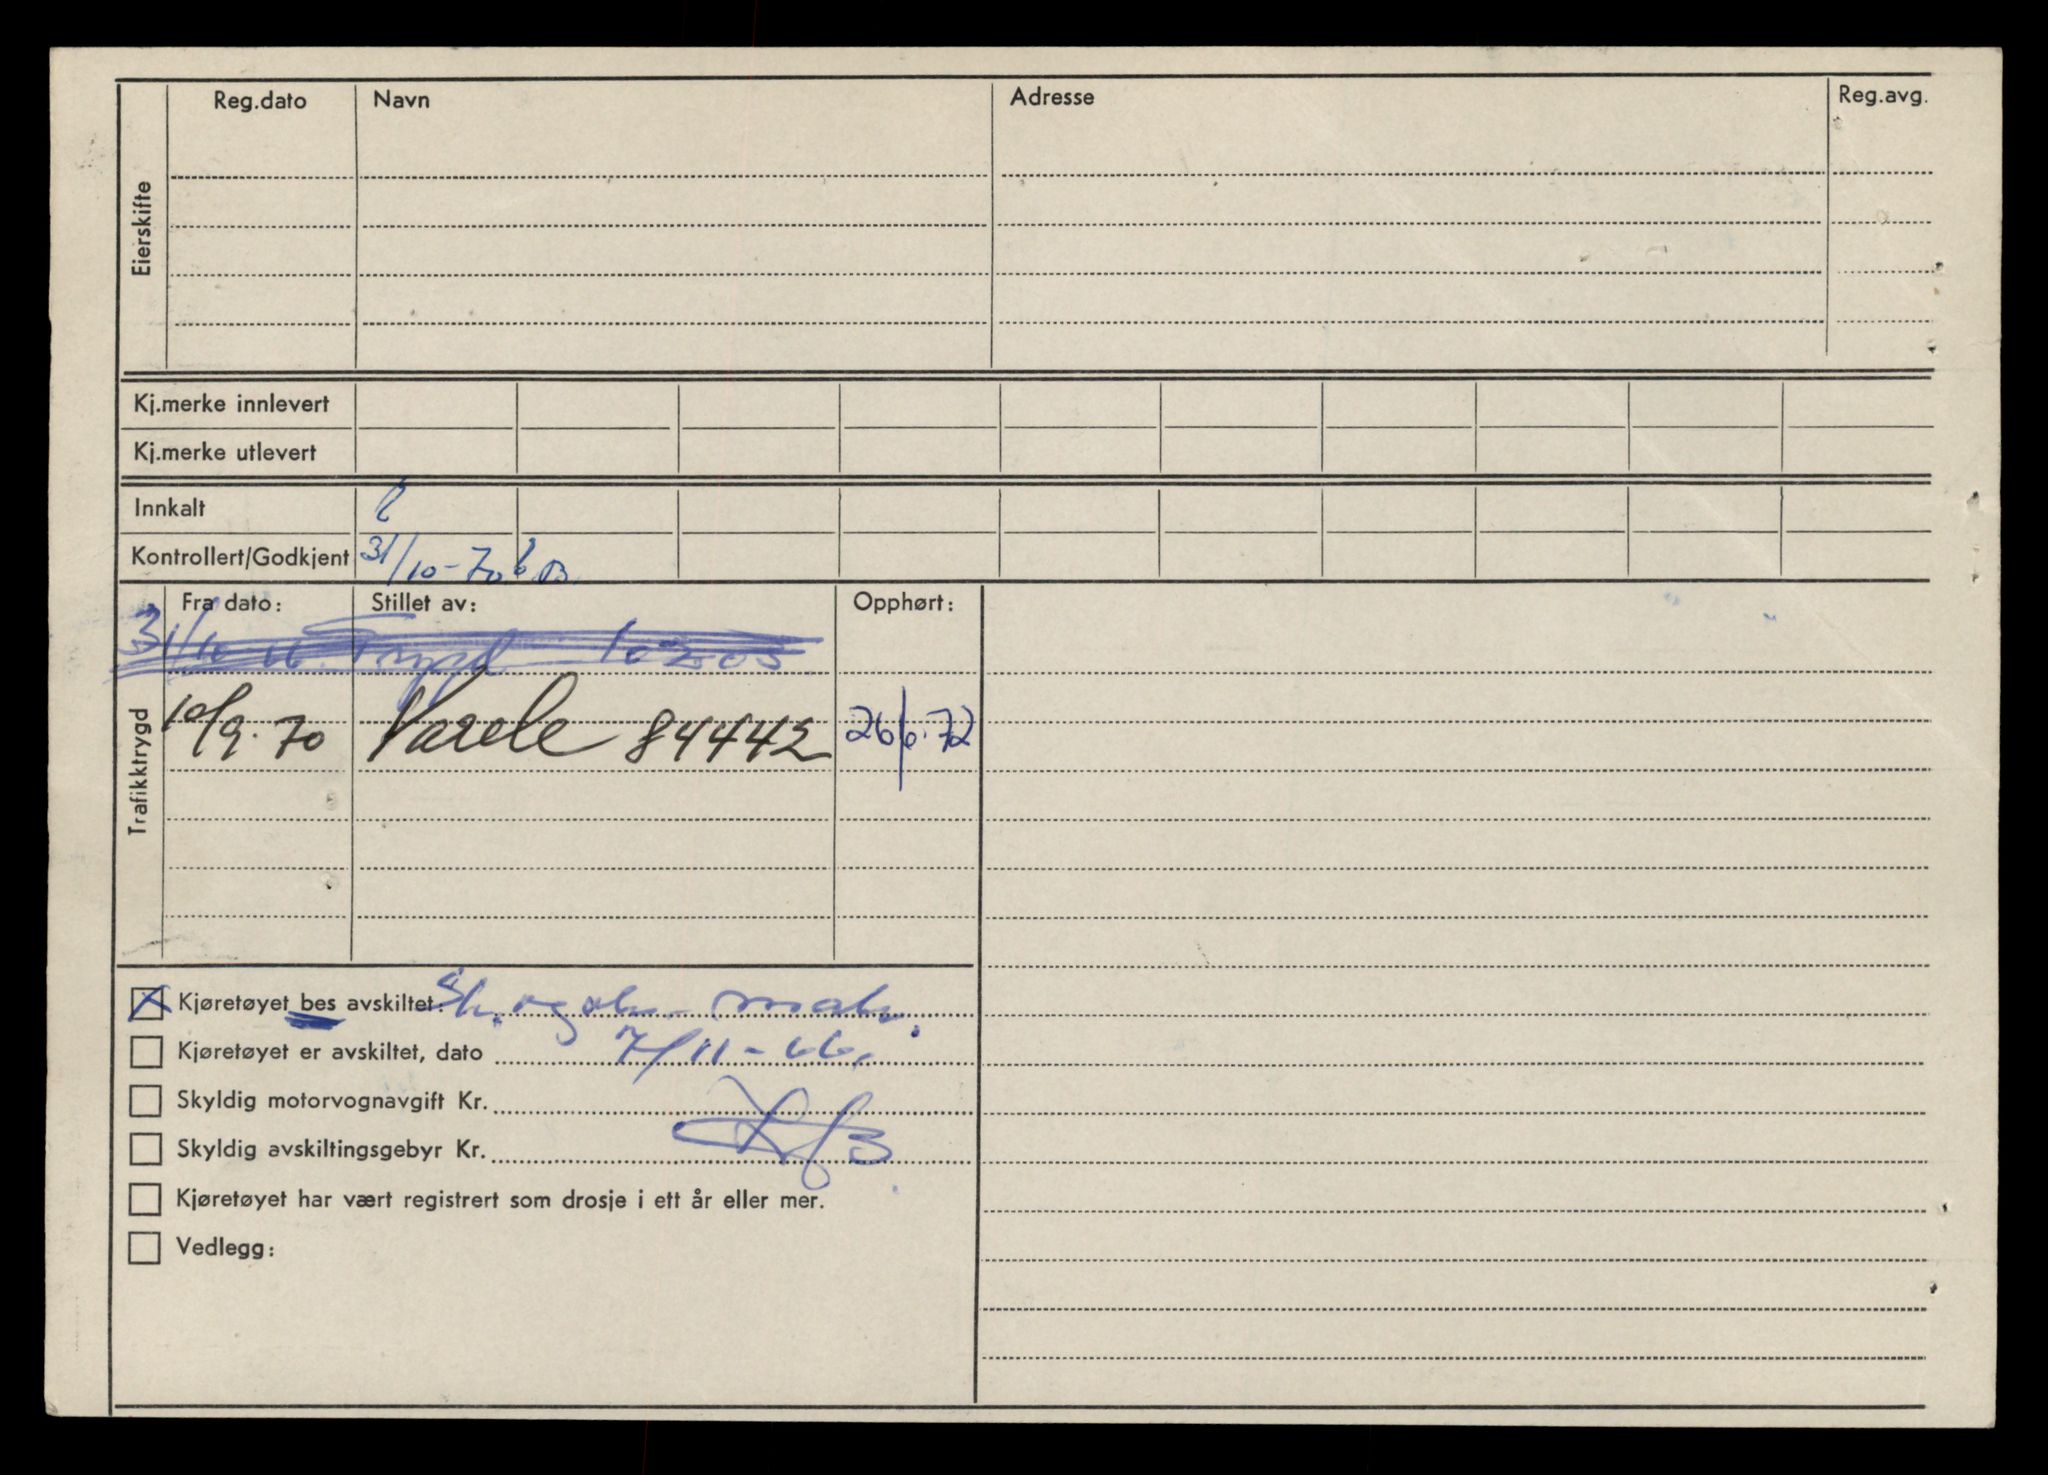 Reg.dato Navn Adresse Reg.avg.
Eierskifte
Kj.merke innlevert
Kj.merke utlevert
Innkalt
Kontrollert/Godkjent 31/10-70
Fra dato: Stillet av: Opphørt:
Trafikktrygd
31/10 66. Trygd
10/9.70 84442 26/6.72
Kjøretøyet bes avskiltet:
Kjøretøyet er avskiltet, dato 7/11-66.
Skyldig motorvognavgift Kr.
Skyldig avskiltingsgebyr Kr.
Kjøretøyet har vært registrert som drosje i ett år eller mer.
Vedlegg: